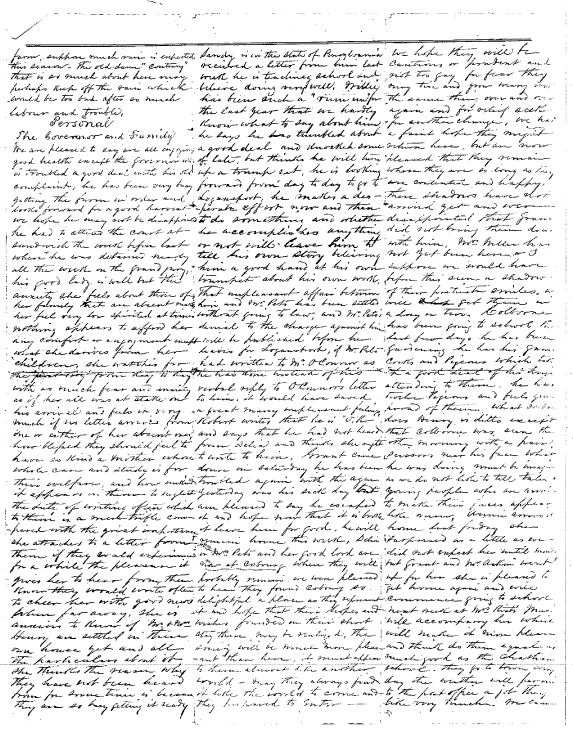 farm, suppose much rain is expected
this season. The old dame "contrary"
that is so much about here may
perhaps keep off the rain which
would be too bad after so much
labour and trouble,
Personal
The Governor and Family
We are pleased to say are all enjoying
good health except the Governor who
is troubled a good deal with his old
complaint, he has been very busy
getting the farm in order and
looks forward for a good harvest
we hope he may not be disappointed
he had to attend the court at
Sandwich the week before last
where he was detained nearly
all the week on the grand jury,
his good lady is well but the
anxiety she feels about those of
her family that are absent makes
her feel very low spirited at times
nothing appears to afford her
any comfort or enjoyment except
what she derives from her
children, she watches for
with as much fear and anxiety
as if her all was at stake on
his arrival and feels so very
much if no letter arrives from
one or either of her absent ones
how blessed they should feel to
have so kind a mother whose
whole care and study is for
their welfare, and how
it appears in them to neglect
the duty of writing often which
to them is a mere trifle
pared with the great importance
she attaches to a letter from
them if they could experience
for a while the pleasure it
gives her to hear from them
I know they would write often
to cheer her with good news
from far away. She is
anxious to know if Mr & Mrs
Henry are settled in their
own house yet and all
the particulars about it
she thinks the reason why
they have not been heard
from for some time is because
they are so busy getting it ready
Sandy, is in the state of Pennsylvania
received a letter from him last
week he is teaching school and
believe doing very well. Willie
has been such a "rum" un for
the last year that we hardly
know what to say about him
he says he has tumbled about
a good deal and knocked some
of late, but thinks he will turn
up a trump yet, he is looking
forward from day to day to go to
Logansport, he makes a des-
perate effort now and then
to do something and whether
he accomplishes anything
or not will leave him to
tell his own story believing
him a good hand at his own
trumpet about his own worth,
that unpleasant affair between
him and Mr. Pete has been settled
without going to law, and Mr. Pete's
denial to the charge against him
will be published before he
leaves for Logansport, if Mr. Pete
had written to Mr. O'Connor as
he has done instead of his
verbal reply to O'Connor's letter
to him, it would have saved
a great many unpleasant feelings,
Robert writes that he is well
and says that he had not heard
from Delia and thinks she ought
to write to him. Grant came
down on Saturday he has been
troubled again with the ague
yesterday was his sick day but
am pleased to say he escaped
it and hope now that it is broke
it leave him for good. he will
remain home this week, Delia
Mr. Pete and her good lord are
now at Cobourg where they will
probably remain we were pleased
to hear they found Cobourg so
delightful a place as they represent
it and hope that their hopes and
wishes founded on their short
stay there, may be realized, the
times will be much more pleas-
ant than here, it must appear
to them almost like another
world — may they always find
it like the world to come and
they beloved to enter —
we hope they will be
Cautious or prudent and
not too gay, for fear they
may tire and grow weary of
the same thing over and over
again and for sick of such
for another change, we had
a faint hope they might
return here, but are now
pleased that they remain
where they are so long as they
are contented and happy.
Those shadows have not
arrived yet and we were
disappointed that Grant
did not bring them down
with him, Mr. Miller has
not yet been here, or I
suppose we would have
before this seen a shadow
of their prettiest smiles, we
will get them in
a day or two. Colborne
has been going to school the
last few days he has been
gardening he has his game
Cocks and Pigeons which take
up a good deal of his time
attending to them. he has
twelve Pigeons and feels quite
proud of them,
as we do not like to tell tales.
young people who are
to make their faces appear
like men, Annie arrived
home last friday she
surprised us a little as we
did not expect her until
but Grant and Mr. Askin went
up for her she is pleased to
get home again and will
commence going to school
next week at Mr. Kids
will accompany her which
will make it more pleasant
and think do them equal as
much good as the Chatham
school. they go to town every
day the weather will permit
to the post office a job they
like very much. We can